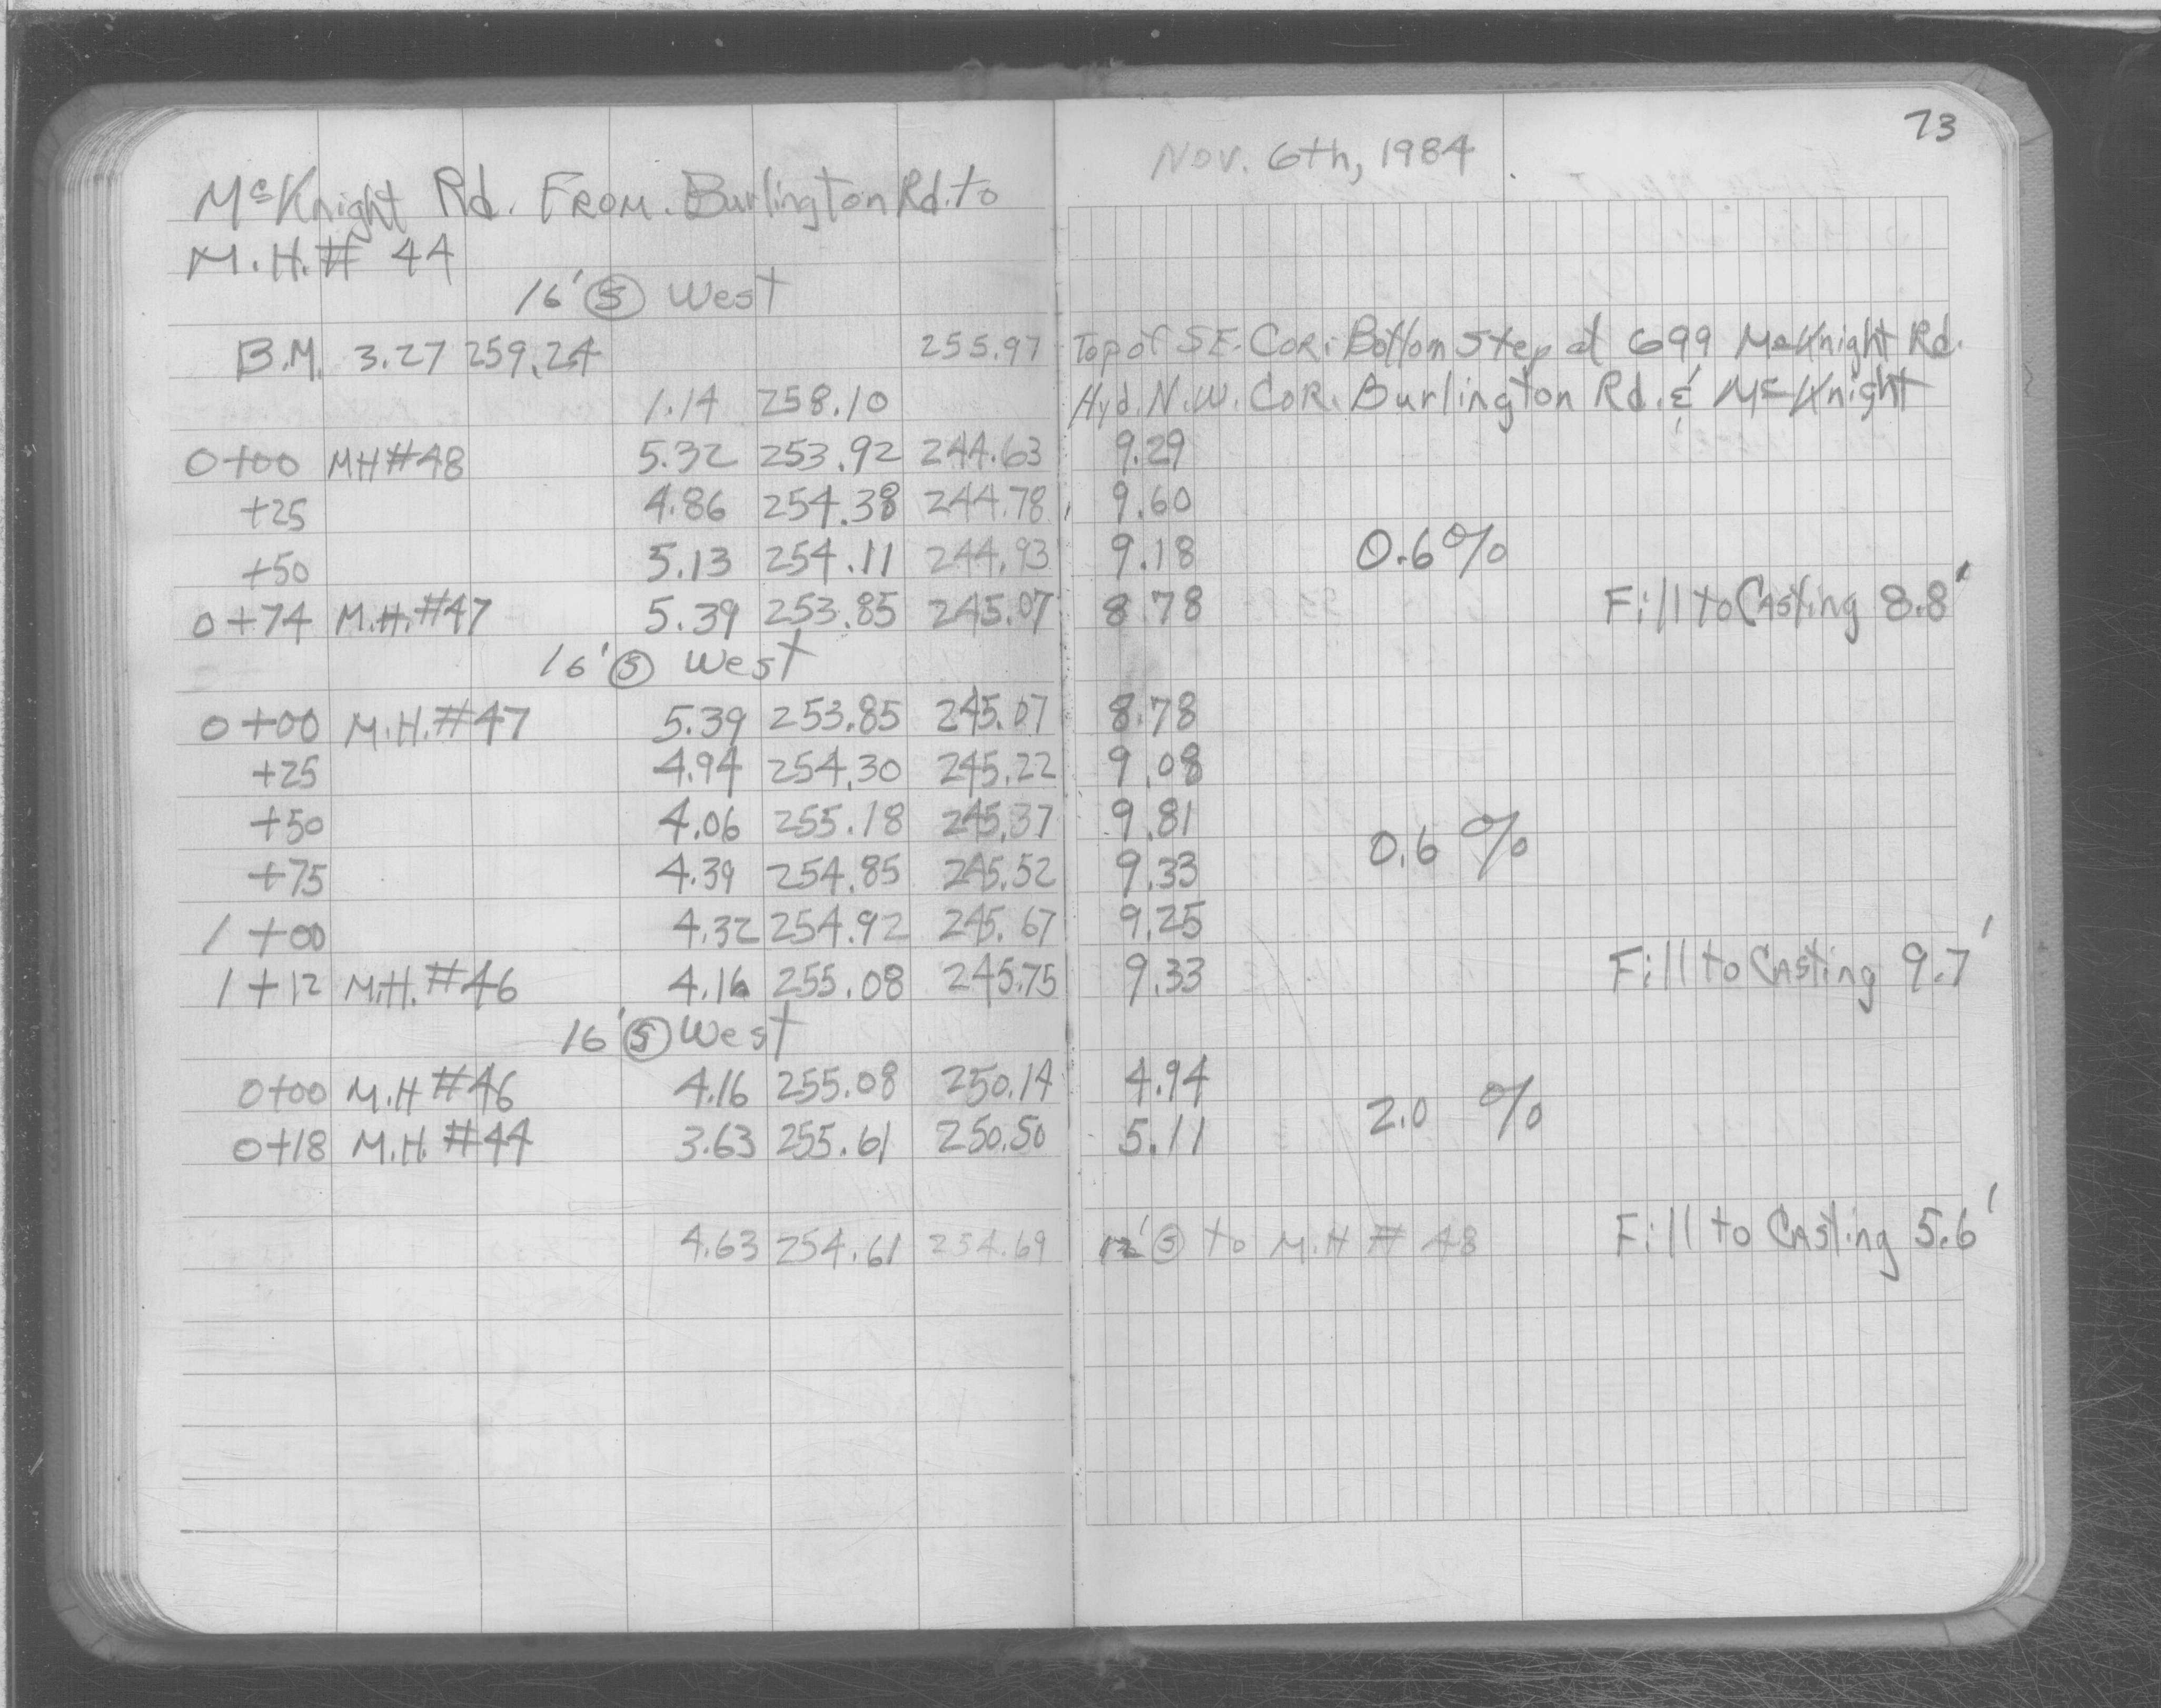 73
Nov. 6th, 1984
McKnight Rd. From. Burlington Rd. to
M.H.# 44
16' Ⓢ West
B.M. 3.27 259.24 255.97 Top of S.E. Cor. Bottom Step at 699 McKnight Rd.
1.14 258.10 Hyd. N.W. Cor. Burlington Rd. & McKnight
0+00 MH#48 5.32 253.92 244.63 9.29
+25 4.86 254.38 244.78 9.60
+50 5.13 254.11 244.93 9.18 0.6%
0+74 M.H.#47 5.39 253.85 245.07 8.78 Fill to Casting 8.8'
16' Ⓢ West
0+00 M.H.#47 5.39 253.85 245.07 8.78
+25 4.94 254.30 245.22 9.08
+50 4.06 255.18 245.37 9.81 0.6 %
+75 4.39 254.85 245.52 9.33
1+00 4.32 254.92 245.67 9.25
1+12 M.H.#46 4.16 255.08 245.75 9.33 Fill to Casting 9.7'
16' Ⓢ West
0+00 M.H #46 4.16 255.08 250.14 4.94 2.0 %
0+18 M.H. #44 3.63 255.61 250.50 5.11
4.63 254.61 254.69 12' Ⓢ to M.H # 48 Fill to Casting 5.6'